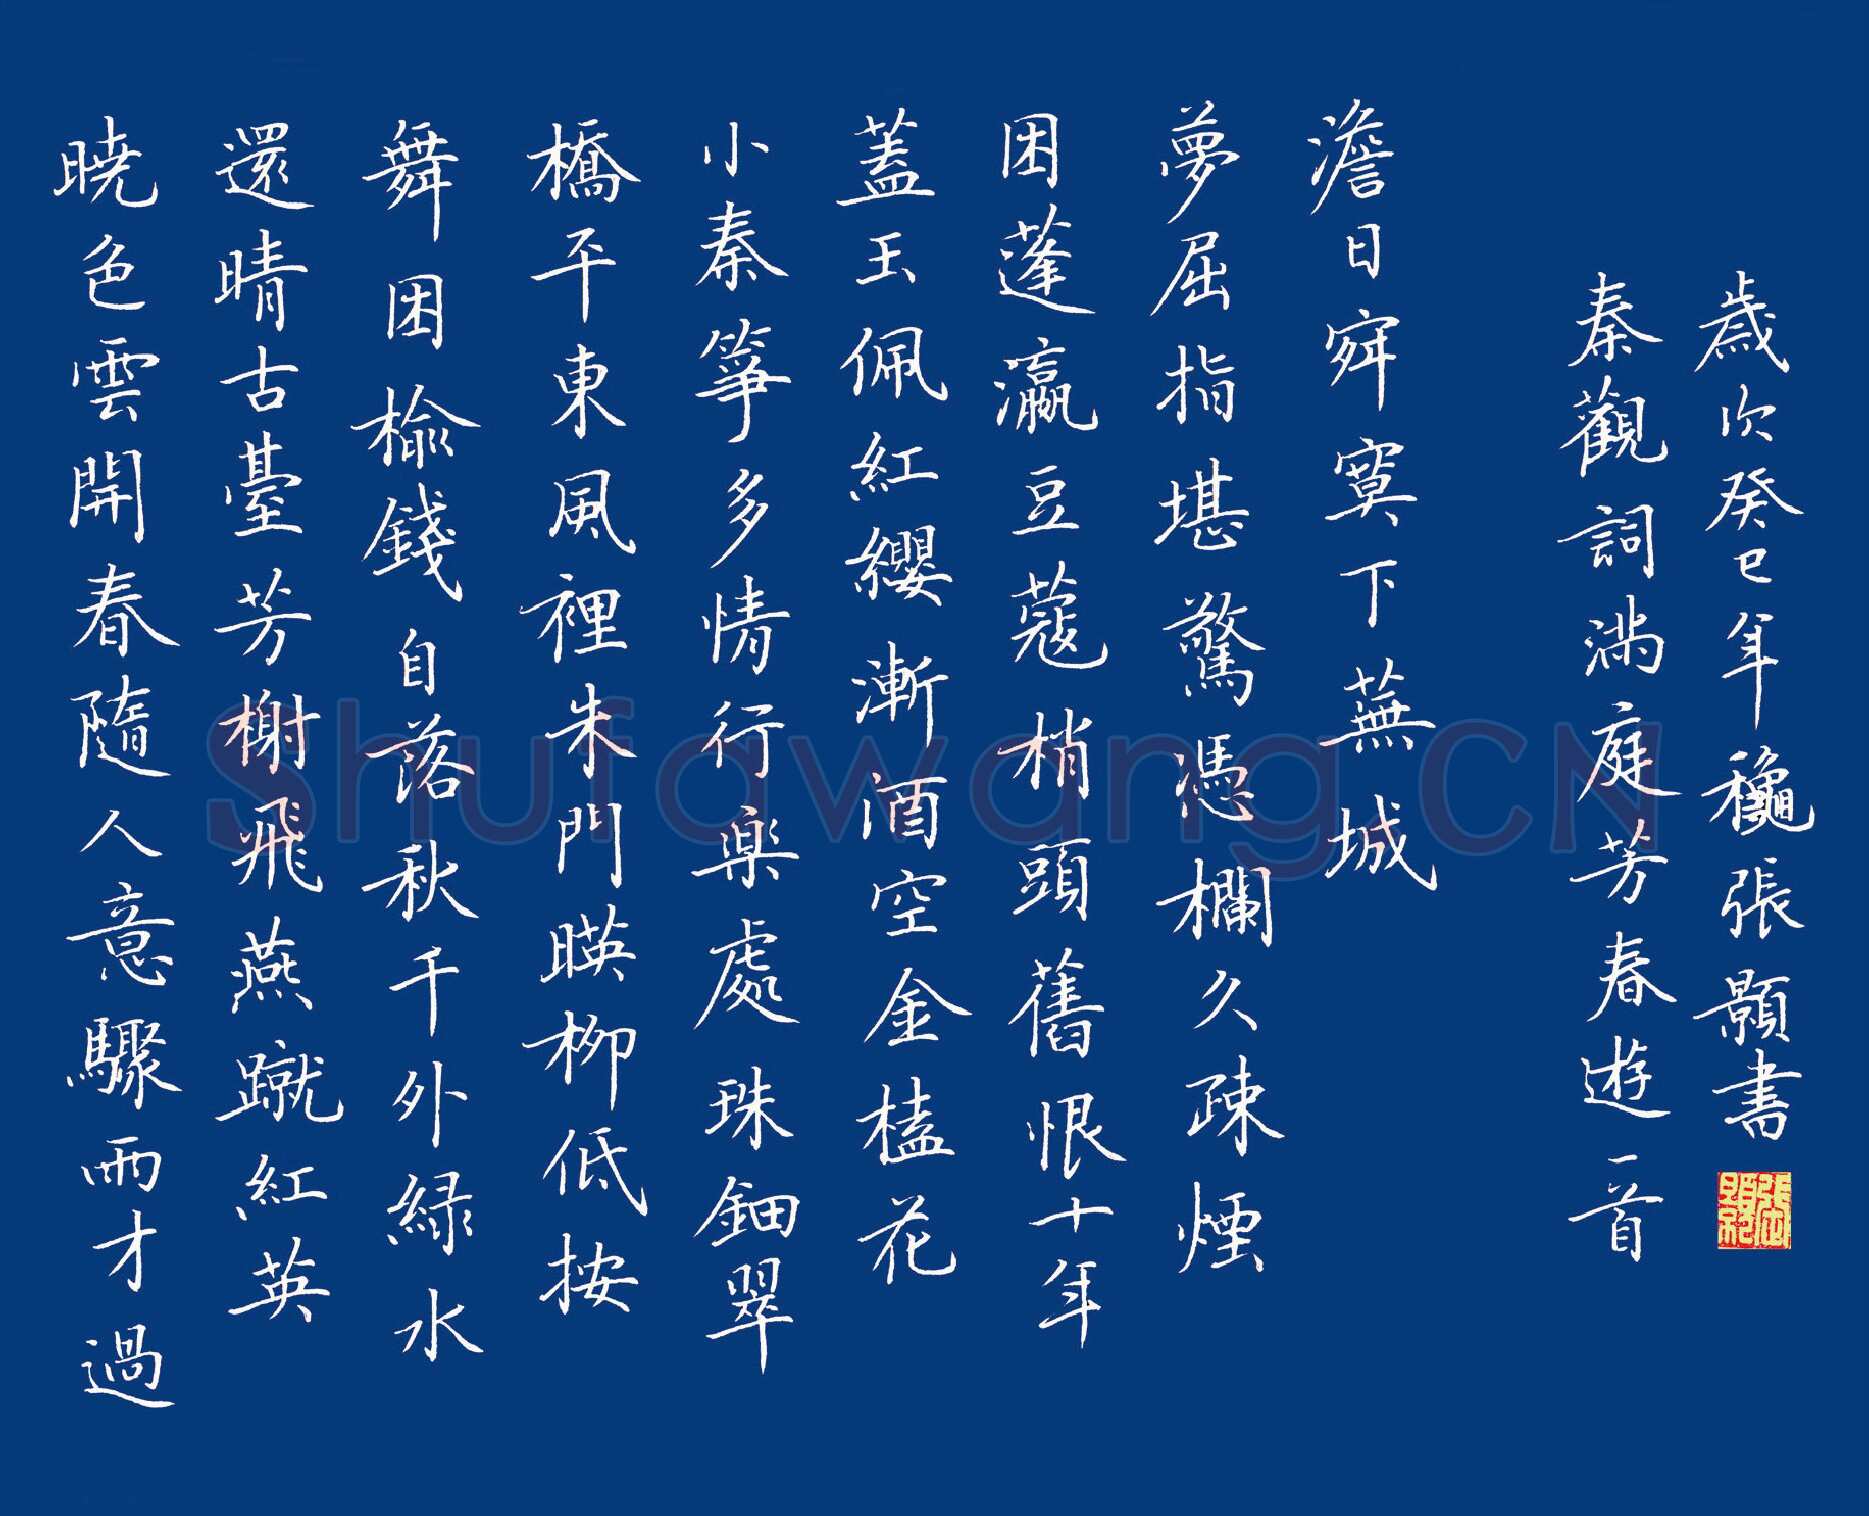 曉色雲開春隨人意驟雨才過
還晴古臺芳榭飛燕蹴紅英
舞困榆錢自落秋千外緑水
橋平東風裡朱門暎柳低按
小秦箏多情行楽處珠鈿翠
蓋玉佩紅纓漸酒空金榼花
困蓬瀛豆蔻梢頭舊恨十年
夢屈指堪驚慿欄久疎煙
澹日寂寞下蕪城
秦觀詞滿庭芳春遊一首
歲次癸巳年龝張顥書
Shufawang.CN